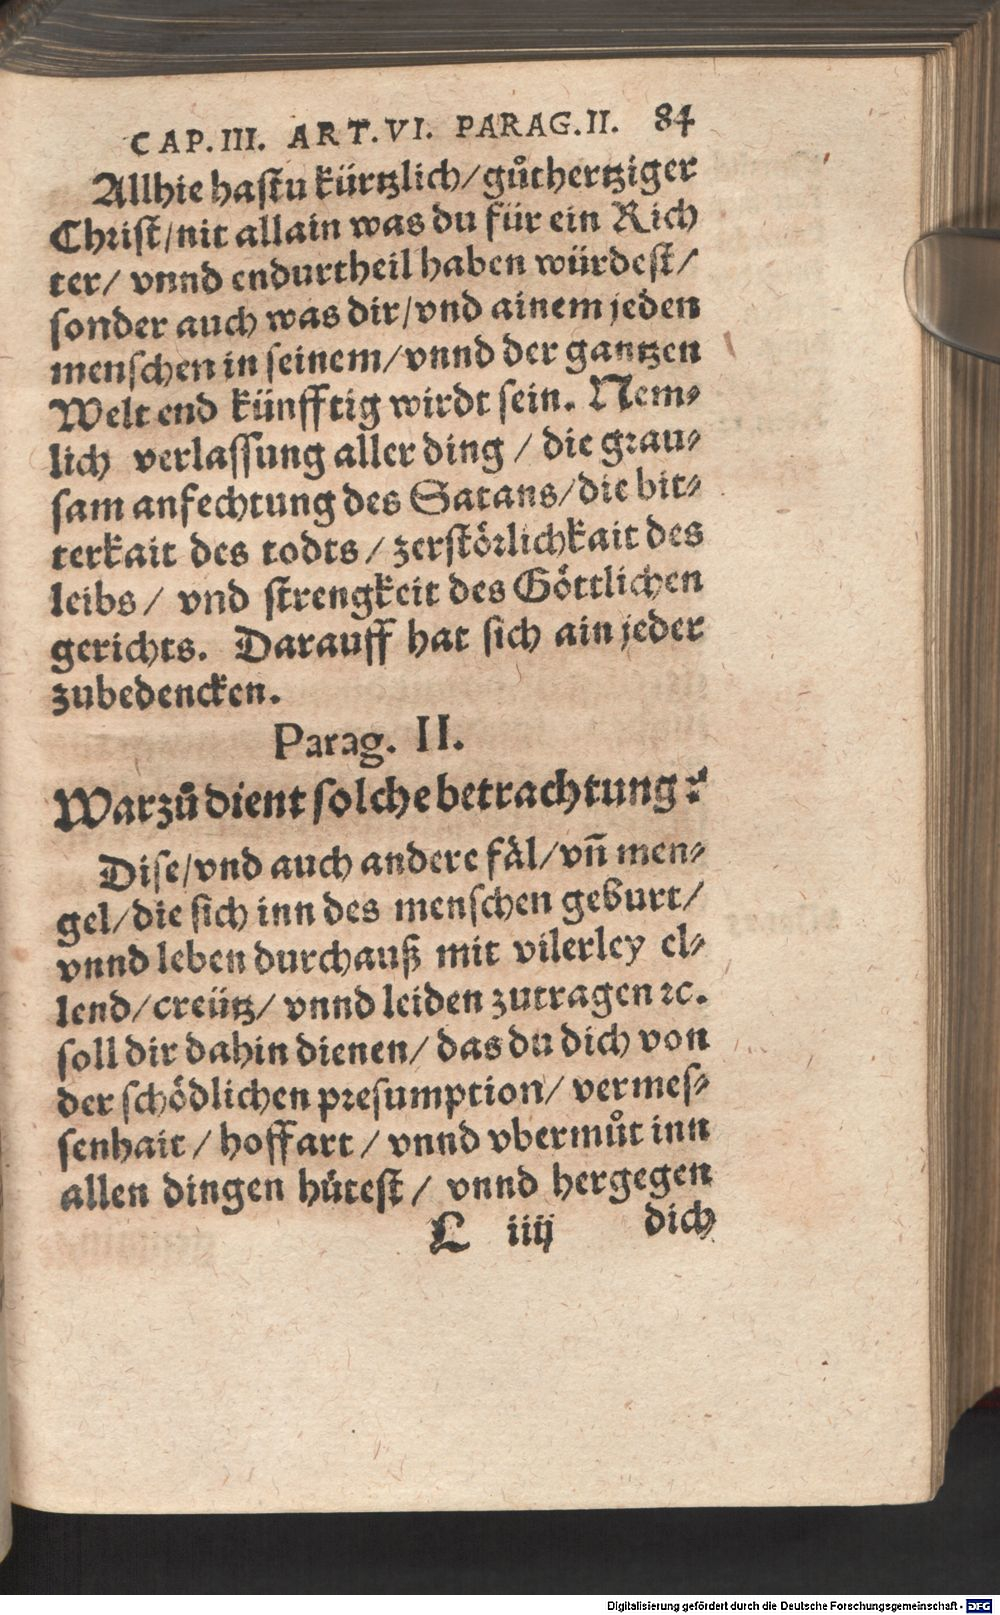 CAP.III. ART.VI. PARAG.II. 84
Allhie hastu kürtzlich/gůthertziger
Christ/nit allain was du für ein Rich
ter/ vnnd endurtheil haben würdest/
sonder auch was dir/vnd ainem jeden
menschen in seinem/vnnd der gantzen
Welt end künfftig wirdt sein. Nem⸗
lich verlassung aller ding / die grau⸗
sam anfechtung des Satans/die bit⸗
terkait des todts / zerstörlichkait des
leibs / vnd strengkeit des Göttlichen
gerichts. Darauff hat sich ain jeder
zubedencken.
Parag. II.
Warzů dient solche betrachtung?
Dise/vnd auch andere fäl/vñ men⸗
gel/die sich inn des menschen geburt/
vnnd leben durchauß mit vilerley el⸗
lend/creütz/ vnnd leiden zutragen ꝛc.
soll dir dahin dienen/ das du dich von
der schödlichen presumption/ vermes⸗
senhait / hoffart / vnnd vbermůt inn
allen dingen hütest / vnnd hergegen
L iiij dich
Digitalisierung gefördert durch die Deutsche Forschungsgemeinschaft - DFG